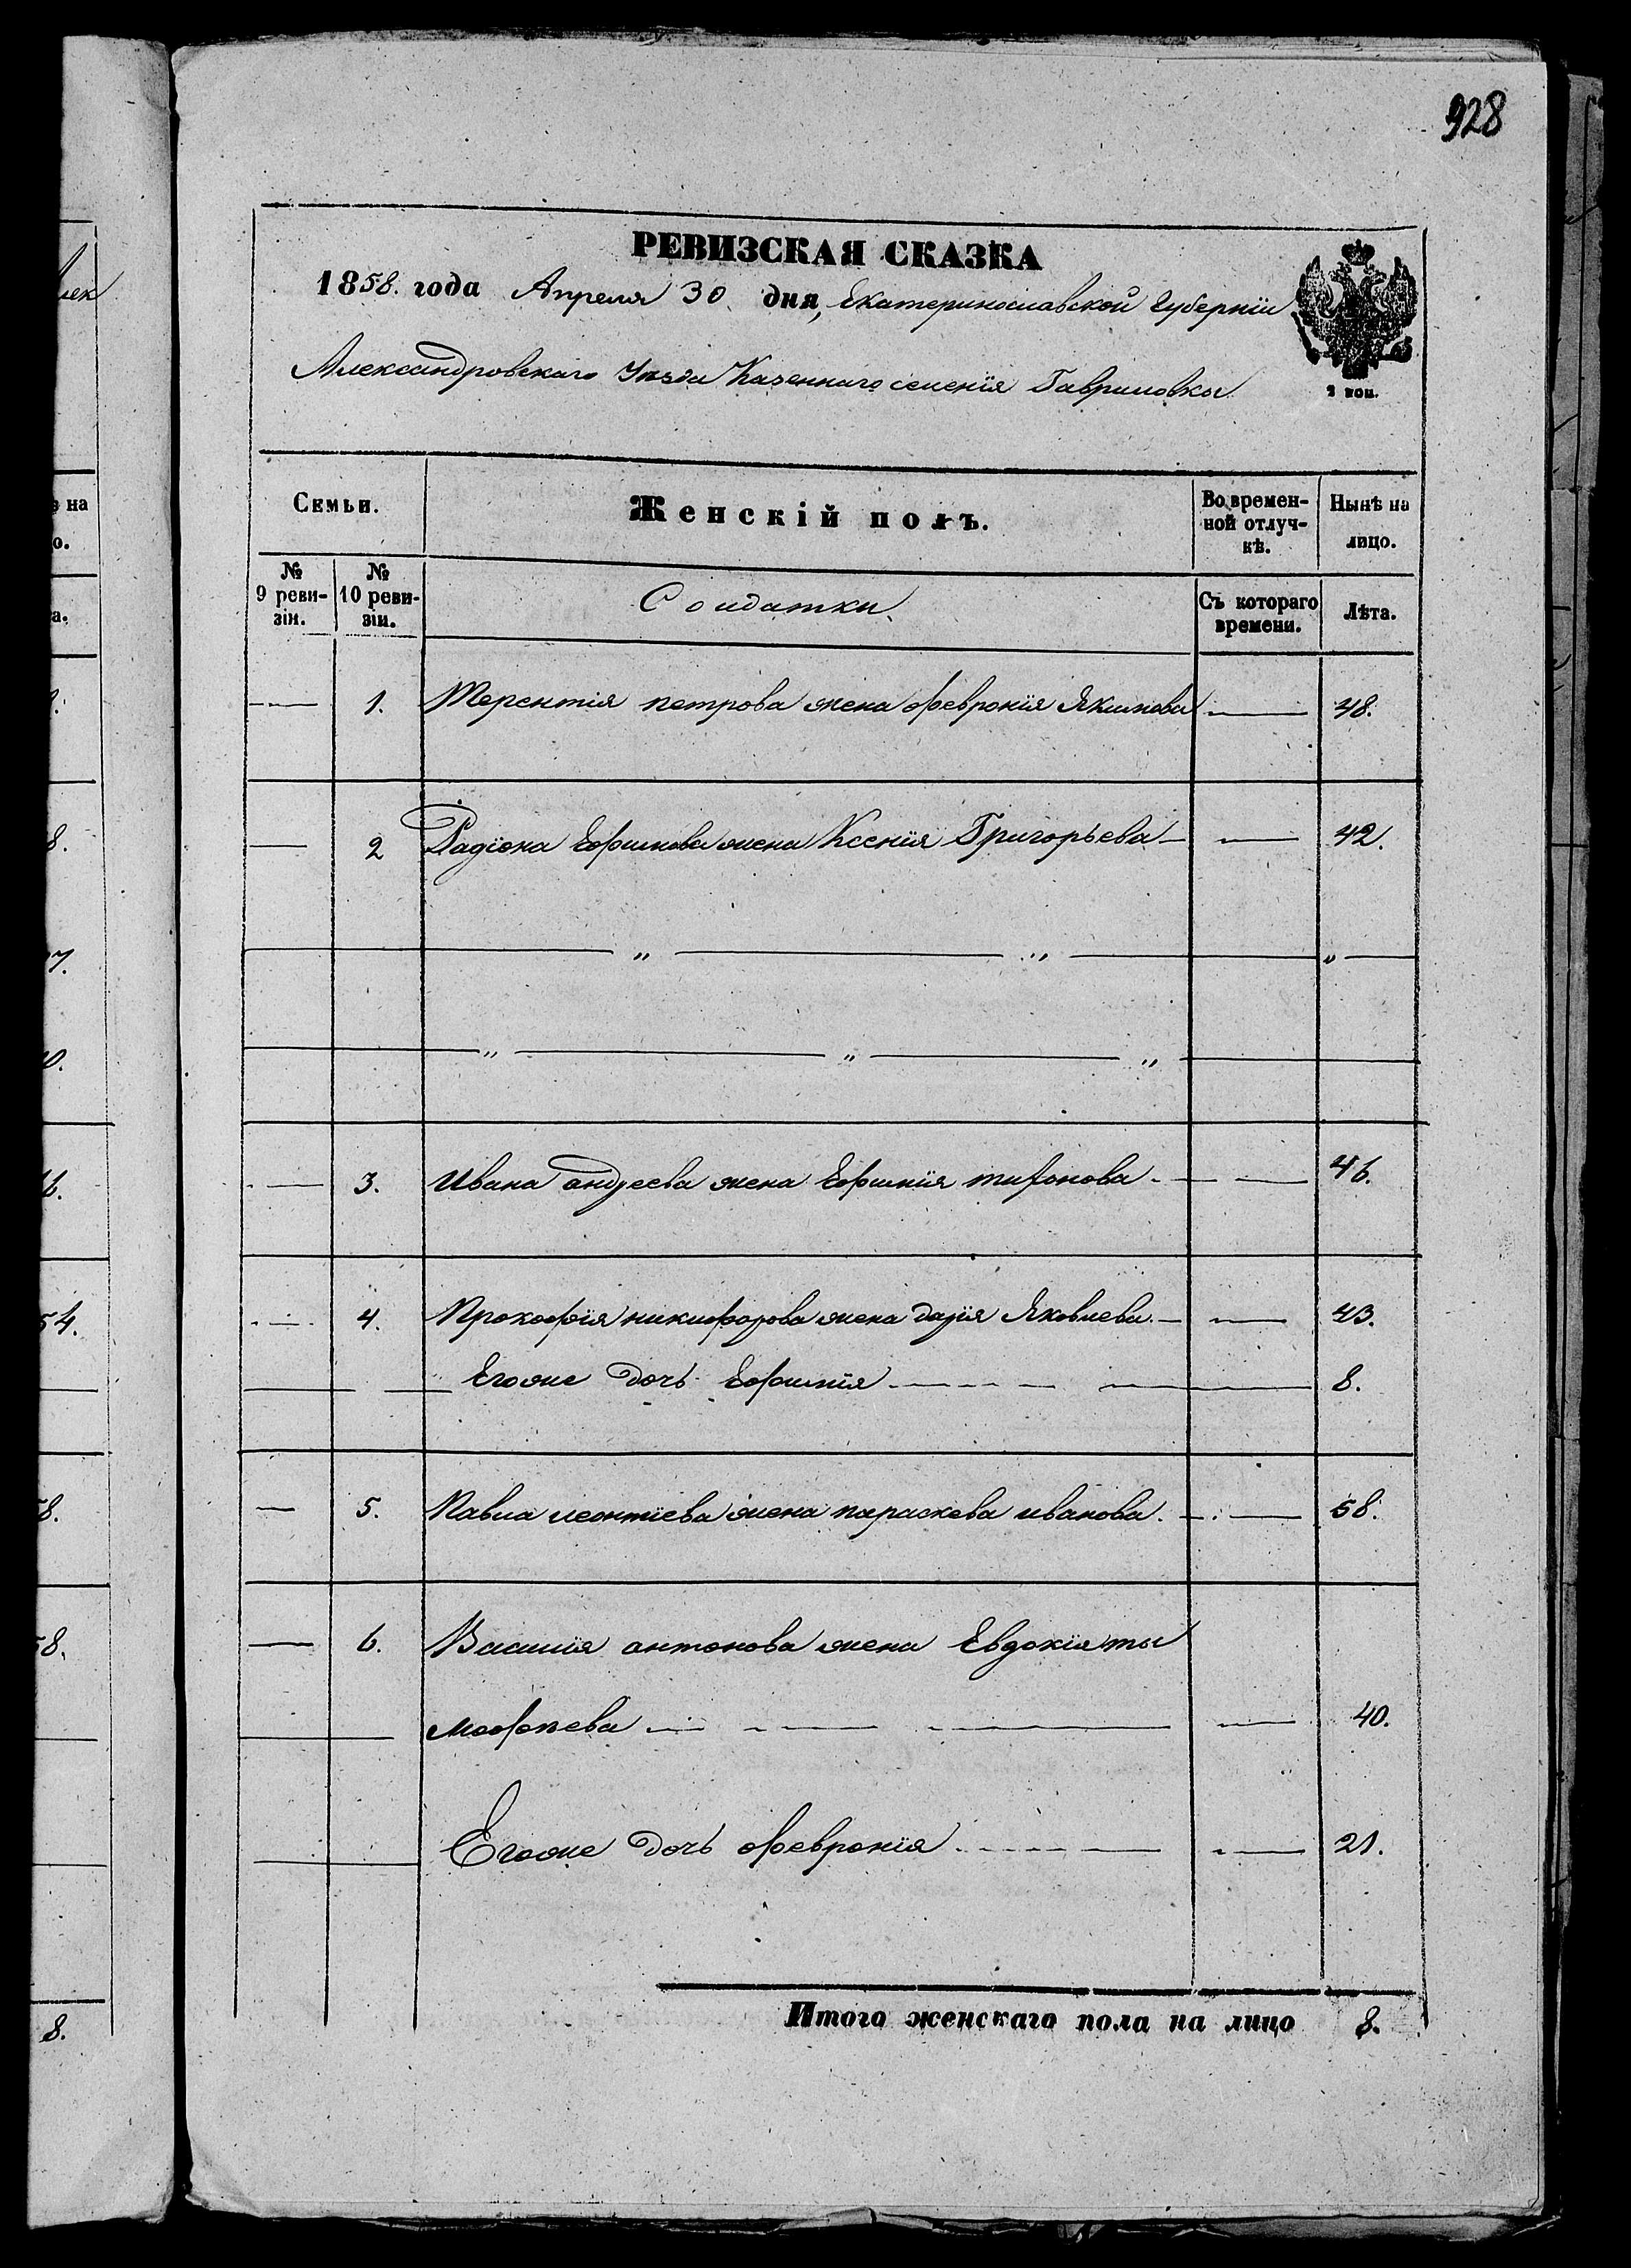 928
РЕВИЗСКАЯ СКАЗКА
1858. года Апреля 30 дня, Екатеринославской Губернїи
Александровскаго Уѣзда Казеннаго селенїя Гавриловки
2 коп.
Семьи. Женскій полъ. Во времен- Нынѣ на
ной отлуч- лицо.
кѣ.
№ № Солдатки. Съ котораго Лѣта.
9 реви- 10 реви- времени.
зіи. зіи.
— 1. Терентїя петрова жена февронїя Якимова — 48.
— 2 Радїона Ефимова жена Ксенїя Григорьева — 42.
— 3. Ивана андреева жена Ефимїя тифонова — 46.
— 4. Прокофїя никифорова жена дарїя Яковлева — 43.
Егоже дочь Ефимїя — 8.
— 5. Павла леонтїева жена параскева иванова. — 58.
— 6. Василїя антонова жена Евдокїя ты
мофѣева — 40.
Егоже дочь февронїя — 21.
Итого женскаго пола на лицо 8.
лек
е на
о.
а.
8.
7.
0.
6.
54.
58.
58.
8.